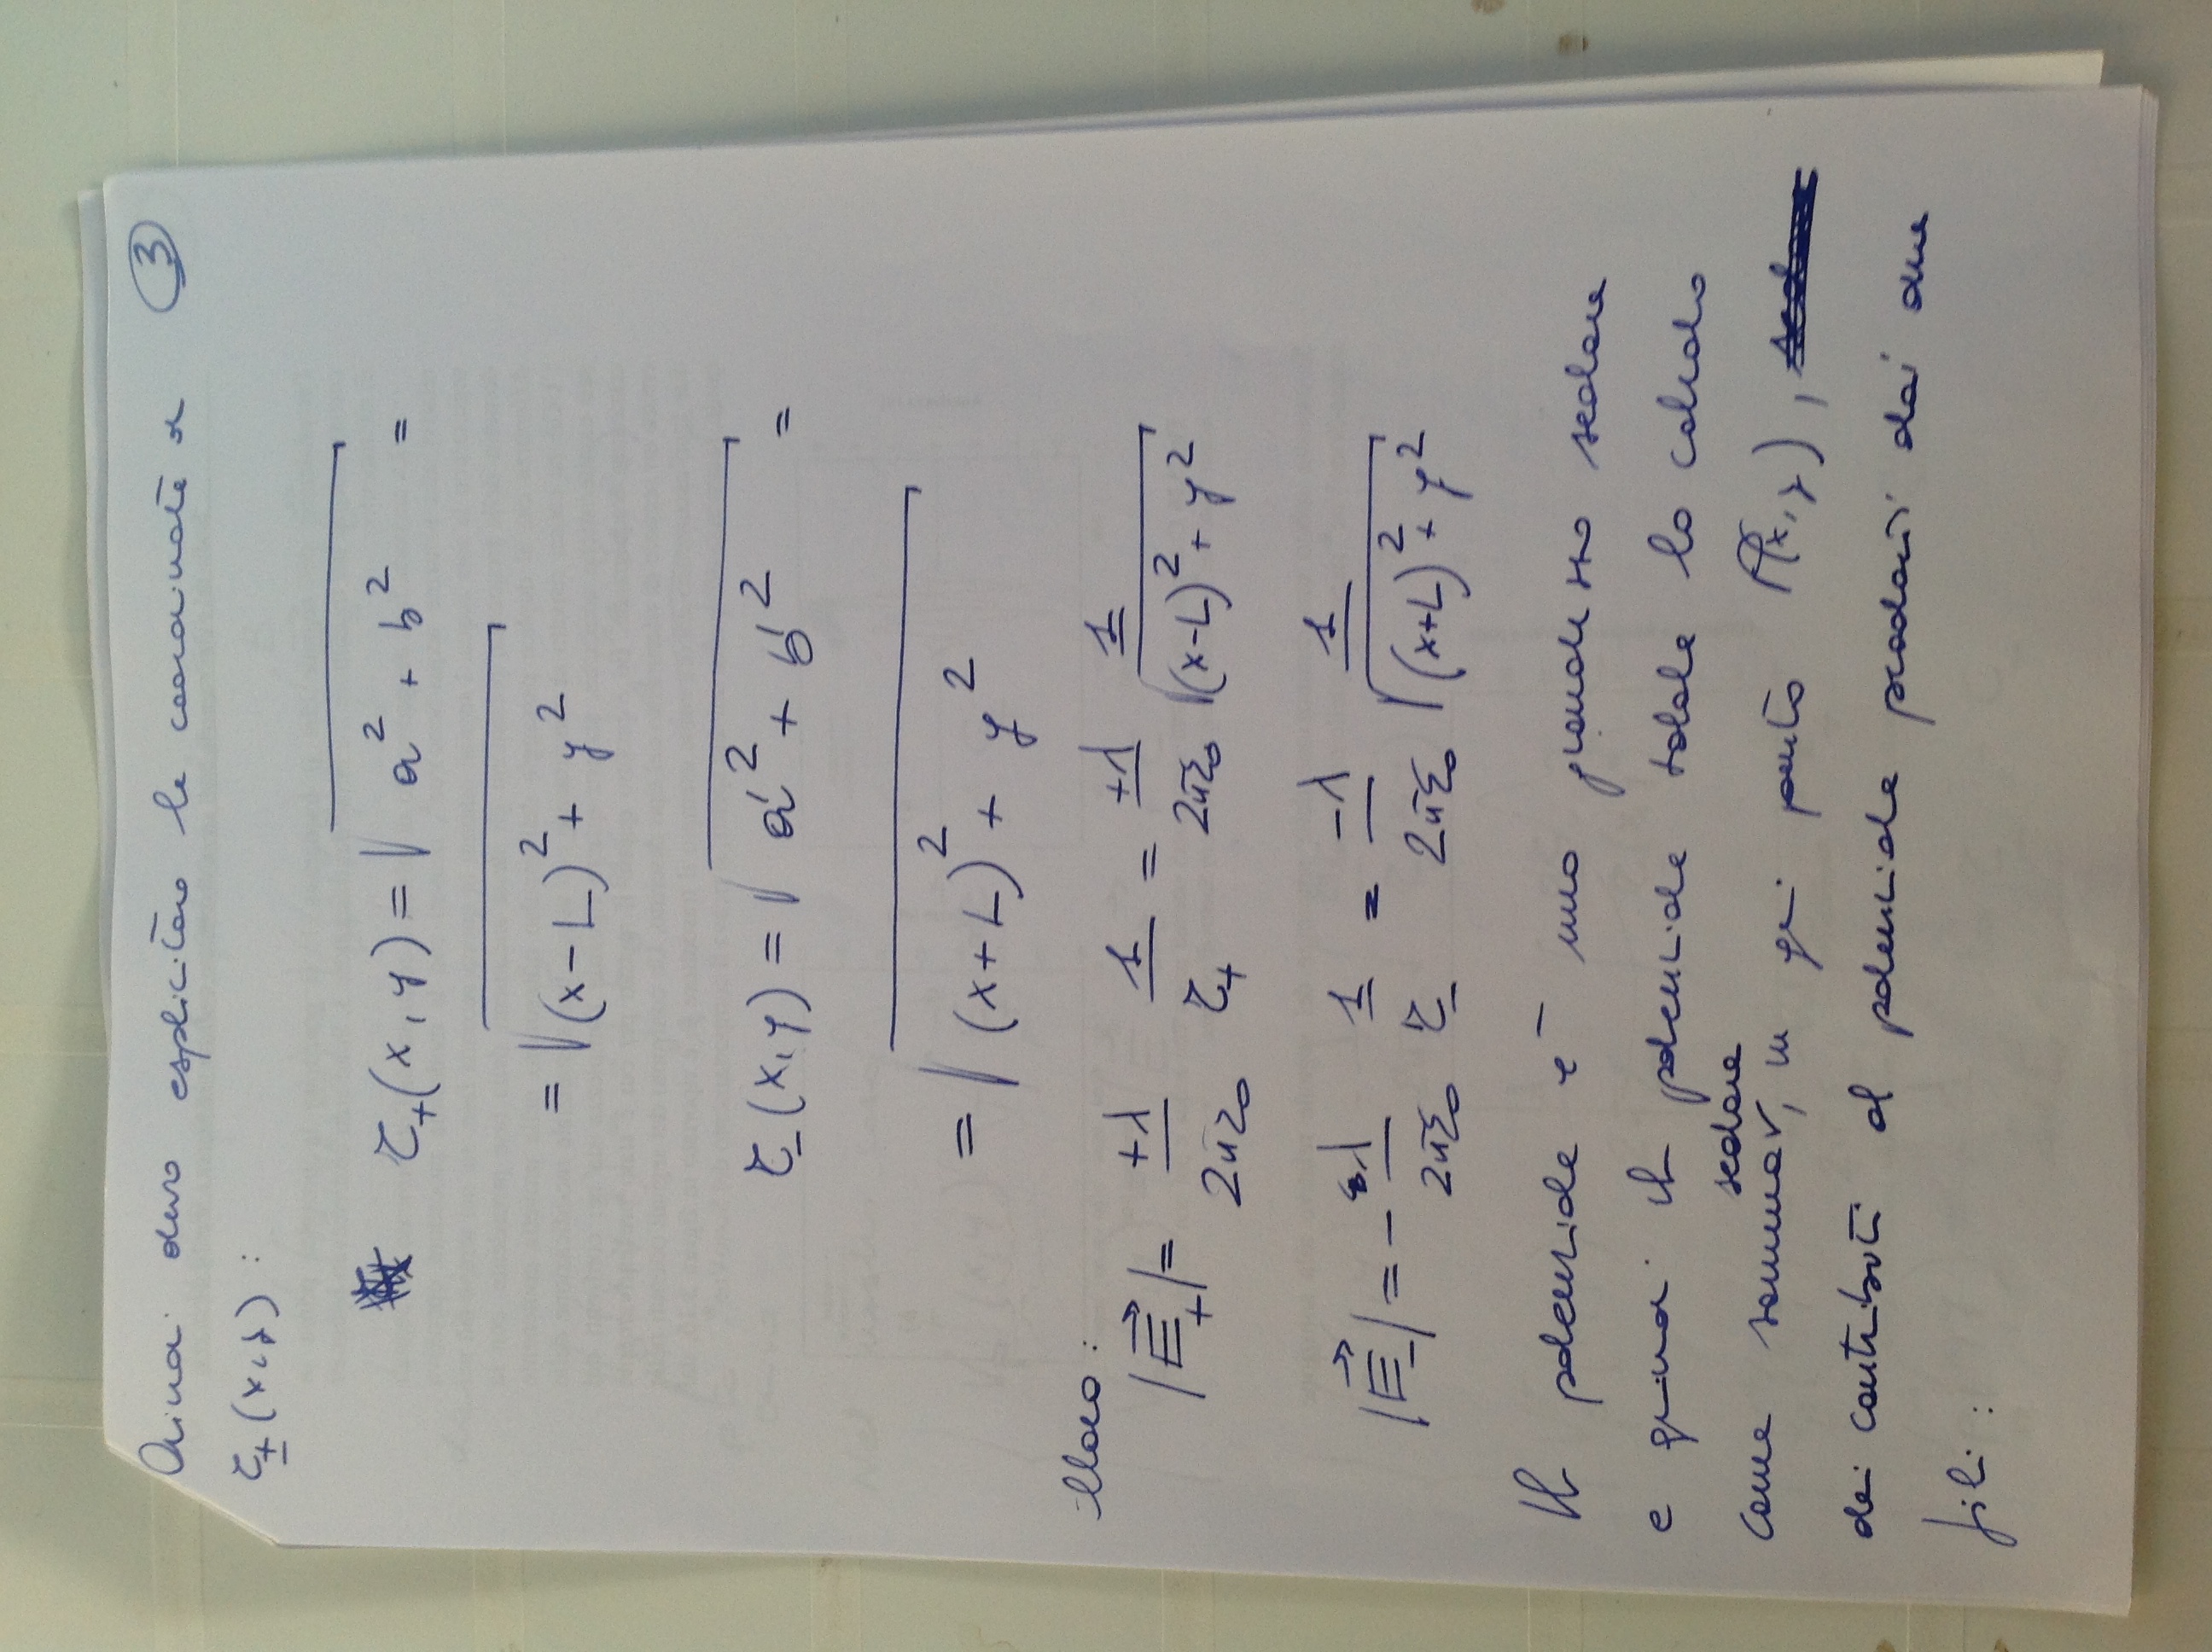 Quindi devo esplicitare le coordinate di
③
r±(x,y) :
r₊(x,y) = √(a² + b²) =
= √((x-L)² + y²)
r₋(x,y) = √(a'² + b'²) =
= √((x+L)² + y²)
Allora :
|E⃗₊| = +λ/2πε₀ 1/r₊ = +λ/2πε₀ 1/√((x-L)² + y²)
|E⃗₋| = - λ/2πε₀ 1/r₋ = -λ/2πε₀ 1/√((x+L)² + y²)
Il potenziale è una grandezza scalare
e quindi il potenziale totale lo calcolo
scalare
come somma, in ogni punto P(x,y),
dei contributi al potenziale prodotti dai due
fili :